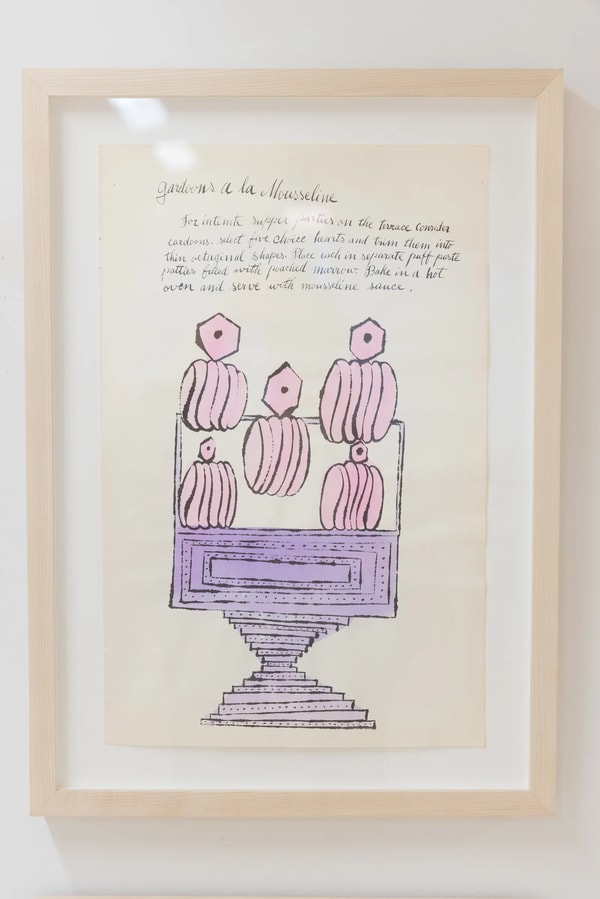 Gardoons a la Mousseline
For intimite supper parties on the terrace consider
cardoons. select five choice hearts and trim them into
thin octagonal shapes. Place each in separate puff paste
patties filled with poached marrow. Bake in a hot
oven and serve with mousseline sauce.